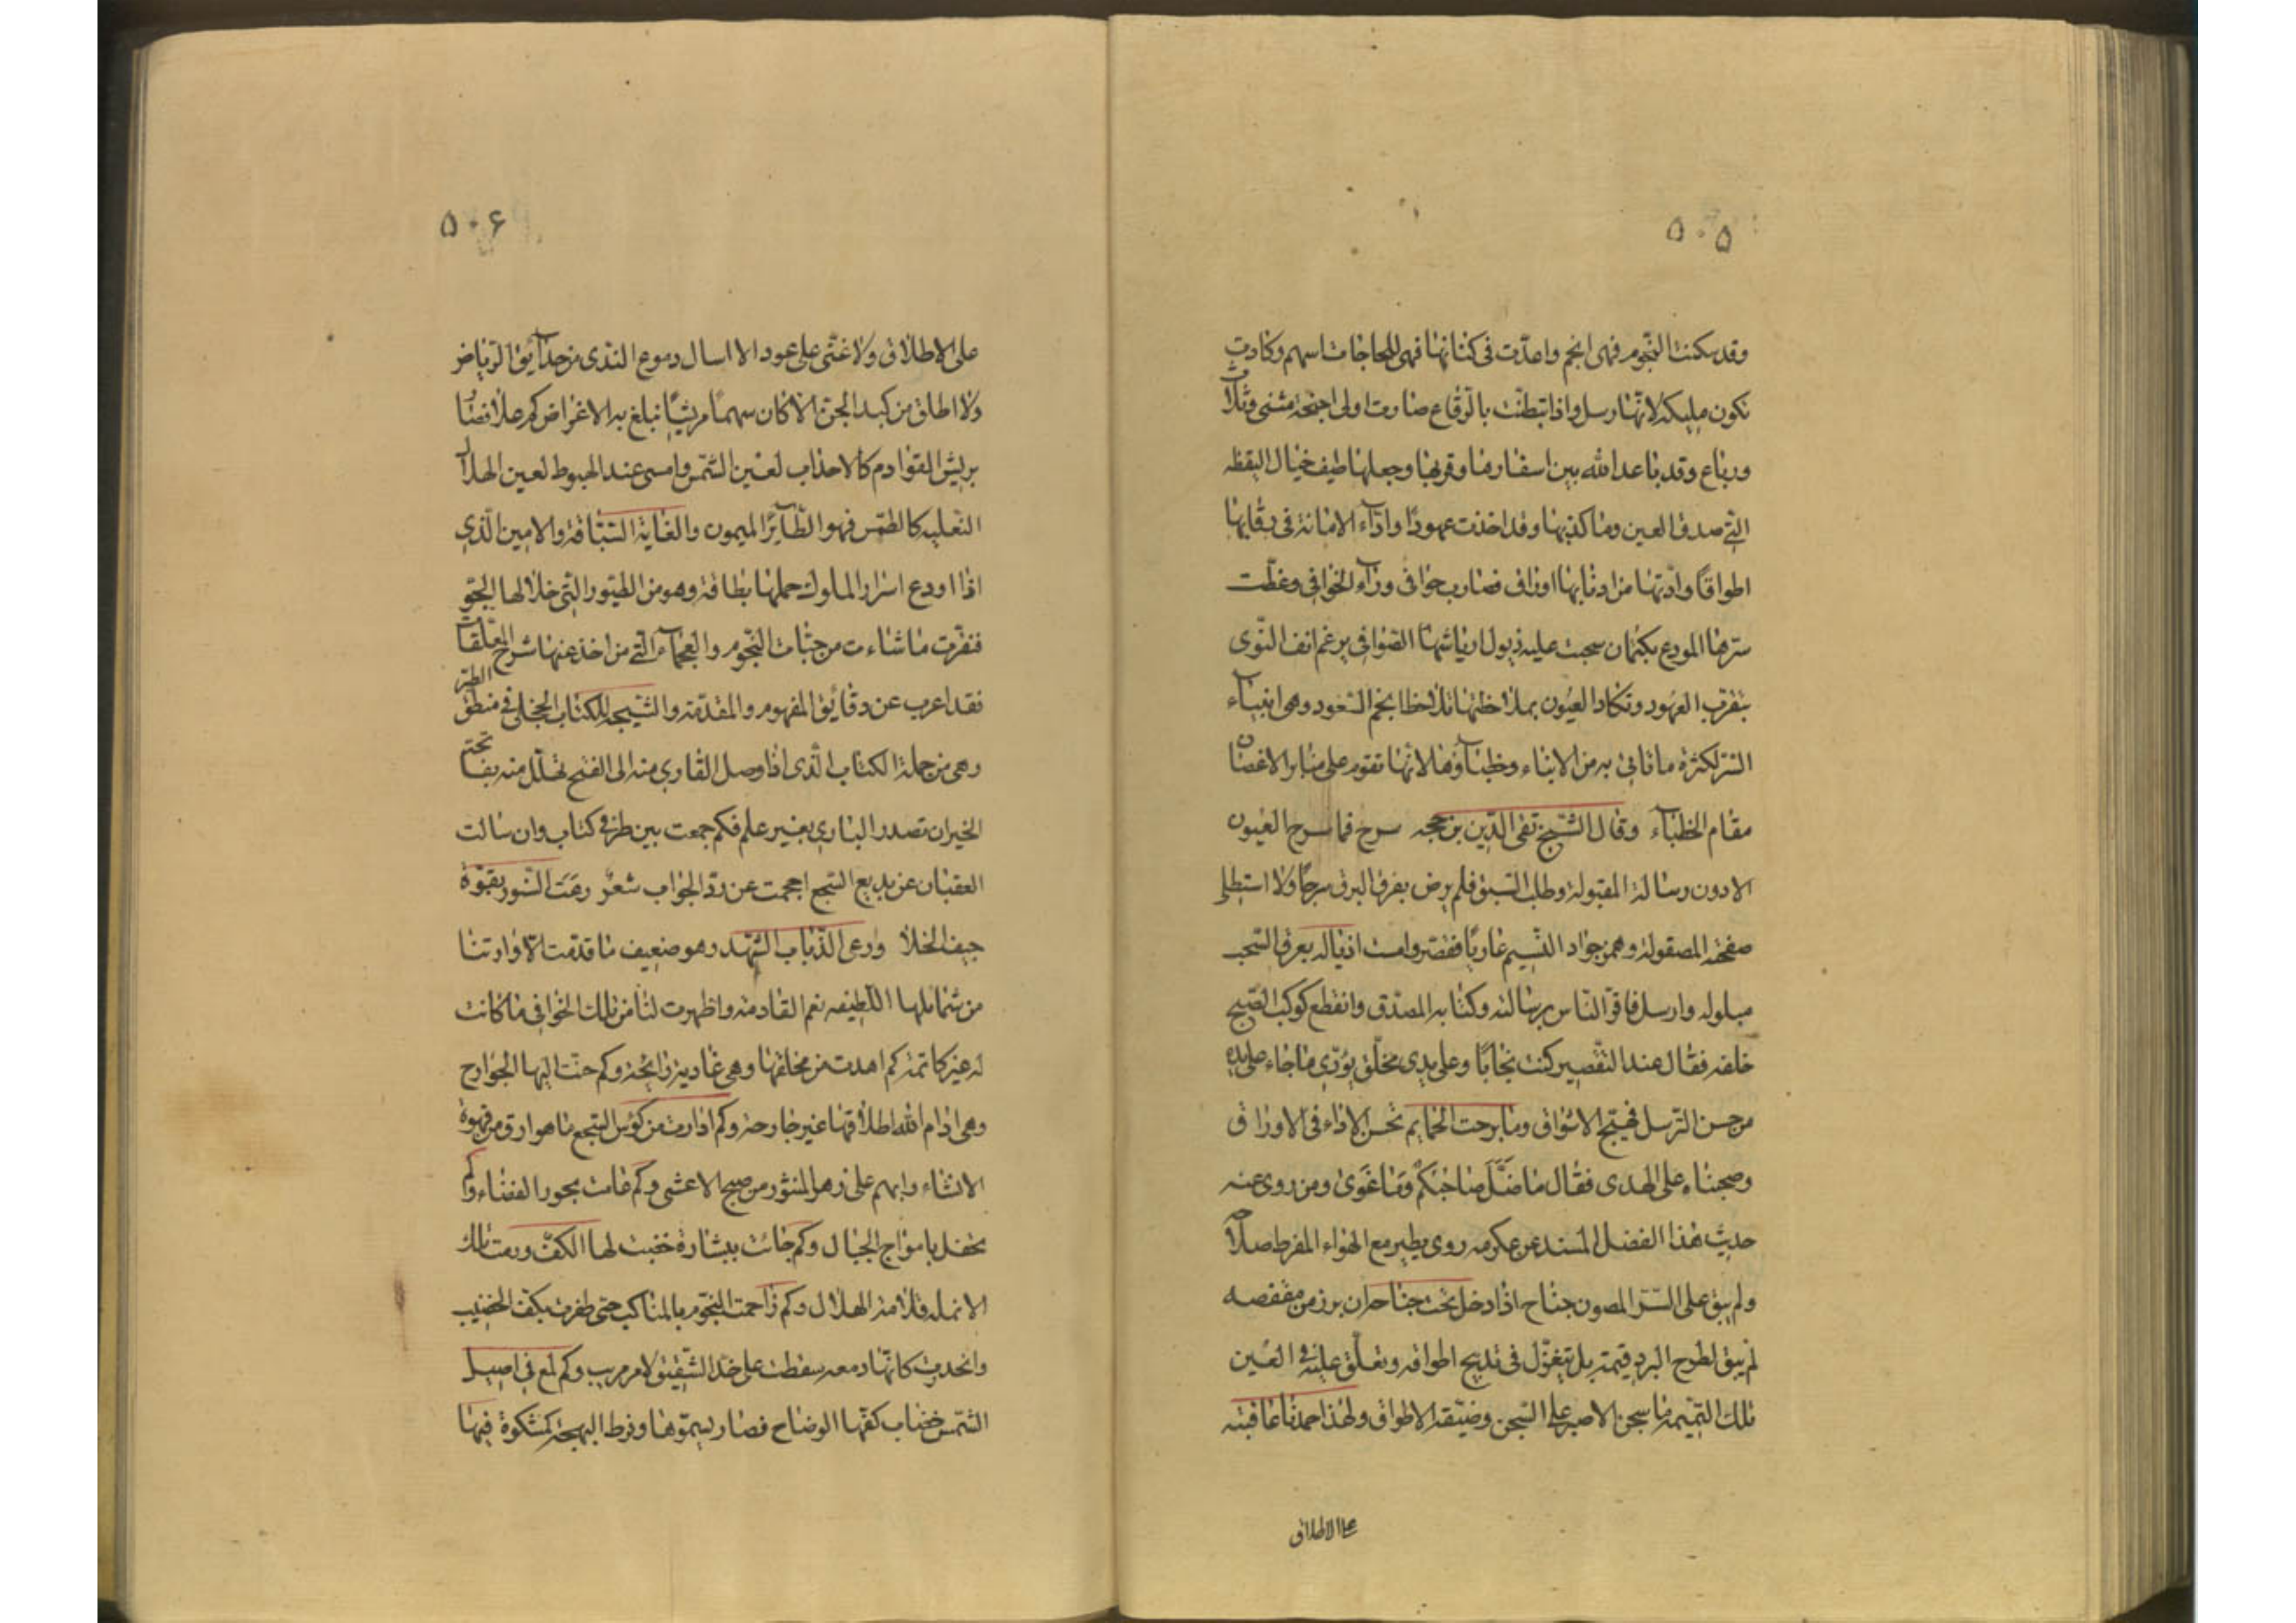 ۵۰۵
وقد سكنت النجوم فهى انجم واعدّت فى كنانها فهى للحاجات اسهم وكادت
تكون مليكه لانّها رسل واذا تبطنّت بالرّقاع صارت اولى اجنحة مثنى وثلاث
ورباع وقد باعد الله بين اسفارها وقربها وجعلها طيف خيال اليقظه
الّتى صدق العين وما كذبها وقد اخذت عهودا واداۤء الامانة فى رقابها
اطواقًا وادّتها من اذنابها اوراق فصارت خوافى وراۤء الخوافى وغطّت
سترها المودع بكتمان سحبت عليه ذيول رياشها الضوافى يرغم انف النّوى
بتقرب العهود وتكاد العيون بملاحظتها تلاحظ انجم السّعود وهى انبياۤء
الستر لكثرة ما تاتى به من الانباء وخطباۤؤها لانّها تقوم على منابر الاغصان
مقام الخطباۤء وقال الشّيخ تقى الدّين بن حجه سرح فما سرح العيون
الا دون رسالة المقبولة وطلب السّبق فلم يرض بفرق البرق سرجًا ولا استظلى
صفحته المصقولة وهمز جواد النّسيم عاريًا فقصر وامست اذياله بعرق السّحب
مبلوله وارسل فاقرّ النّاس برسالته وكتابه المصدّق وانقطع كوكب الصّبح
خلفه فقال عند التّقصير كنت نجابًا وعلى يدى مخلّق يؤدّى ما جاء على يده
من حسن الترسل فيهيّج الاشواق وما برحت الحمايم تحسن الاداء فى الاوراق
وصحبناه على الهدى فقال ما ضَلَّ صَاحبُكُم وَمَا غَوَىٰ ومن روى عنه
حديث هذا الفضل المسند عن عكرمه روى يطير مع الهواء المفرط صلاحه
ولم يبق على السّرّ المصون جناح اذا دخل تحت جناحه ان برز من مقفصه
لم يبق لصرح البرد قيمته بل يتغزّل فى تدبيج اطواقه وتعلّق عليه فى العين
تلك التّميمه ما سجن الا صبر على السّجن وضيّقة الاطواق ولهذا حمدنا عاقبته
على الاطلاق
۵۰۶
على الاطلاق ولا غنّى على عود الا اسال دموع النّدى من حداۤئق الرّياض
ولا اطلق من كبد الجوّ الا كان سهمًا مريّشًا نبلغ به الاغراض كم علا فصار
بريش القوادم كالاهداب لعين الشّمس وامسى عند الهبوط لعين الهلال
النّعليه كالطمس فهو الطّاۤئر الميمون والغاية السّبّاقة والامين الّذى
اذا اودع اسرار الملوك حملها بطاقة وهو من الطّيور الّتى خلا لها الجوّ
فنقرت ما شاءت من حبّات النّجوم والعجماۤء الّتى من اخذ عنها شرح المعلّقات
فقد اعرب عن دقاۤئق المفهوم والمقدّمة والنّتيجة للكتاب الحجلى فى منطق الطّير
وهى من جملة الكتاب الّذى اذا وصل القارى منه الى الفتح تهلّل منه بفاتحة
الخير ان تصدر البازى بغير علم فكم جمعت بين طرفى كتاب وان سالت
العقبان عن بديع السّجع احجمت عن ردّ الجواب شعرٌ رعت النّسور بقوّة
جيف الخلا ورعى الذّباب الشّهد وهو ضعيف ما قدّمت الّا وارتنا
من شمايلها اللّطيفه نعم القادمة واظهرت لنا من تلك الخوافى ما كانت
له غير كاتمة كم اهدت من مخالقها وهى غادية رايحة وكم حنّت اليها الجوارح
وهى ادام الله اطلاقها غير جارحة وكم ادارت من كؤس السّجع ما هو ارق من قهوة
الانشاء وابهى على زهر المنثور من صبح الاعشى وكم عامت بحور الفضاء ولم
تحفل بامواج الجبال وكم جائت ببشارة خضبت لها الكفّ ورمت تلك
الانمله قلامة الهلال وكم زاحمت النّجوم بالمناكب حتى ظفرت بكفّ الخضيب
وانحدرت كانّها دمعه سقطت على خدّ الشّقيق لامر مريب وكم لمع فى اصيل
الشّمس خضاب كفّها الوضاح فصار بسموّها وفرط البهجة كمشكوة فيها